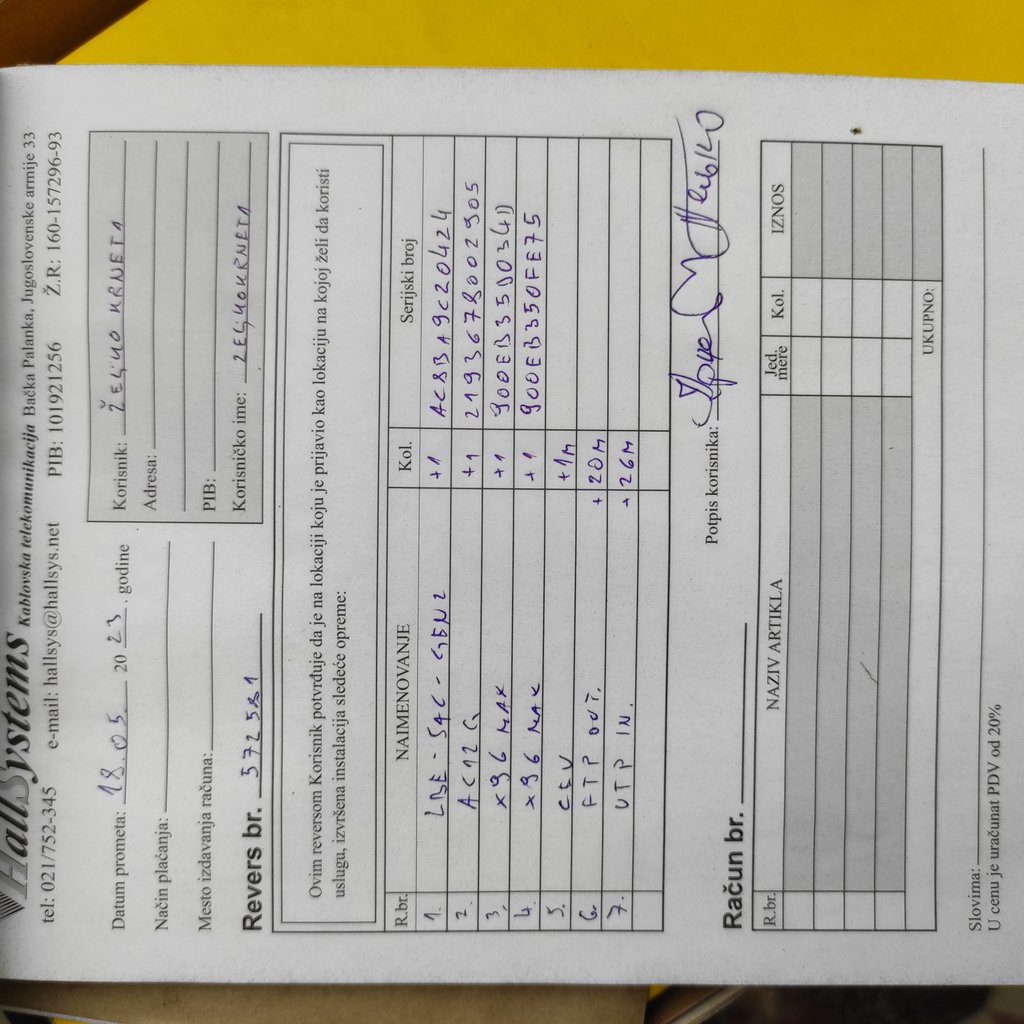 HallSystems Kablovska telekomunikacija Bačka Palanka, Jugoslovenske armije 33
tel: 021/752-345 e-mail: hallsys@hallsys.net PIB: 101921256 Ž.R: 160-157296-93
Datum prometa: 18.05. 2023. godine
Način plaćanja:
Mesto izdavanja računa:
Korisnik: ŽELJKO KRNETA
Adresa:
PIB:
Korisničko ime: ZELJKOKRNETA
Revers br. 572581
Ovim reversom Korisnik potvrđuje da je na lokaciji koju je prijavio kao lokaciju na kojoj želi da koristi
uslugu, izvršena instalacija sledeće opreme:
R.br. NAIMENOVANJE Kol. Serijski broj
1. LBE-5AC-GEN2 +1 AC8BA9C20424
2. AC12G +1 2193678002905
3. X96 MAX +1 900EB35D0341
4. X96 MAX +1 900EB350FE75
5. CEV +1M
6. FTP OUT. +20M
7. UTP IN. +26M
Potpis korisnika:
Račun br.
R.br. NAZIV ARTIKLA Jed. mere Kol. IZNOS
UKUPNO:
Slovima:
U cenu je uračunat PDV od 20%